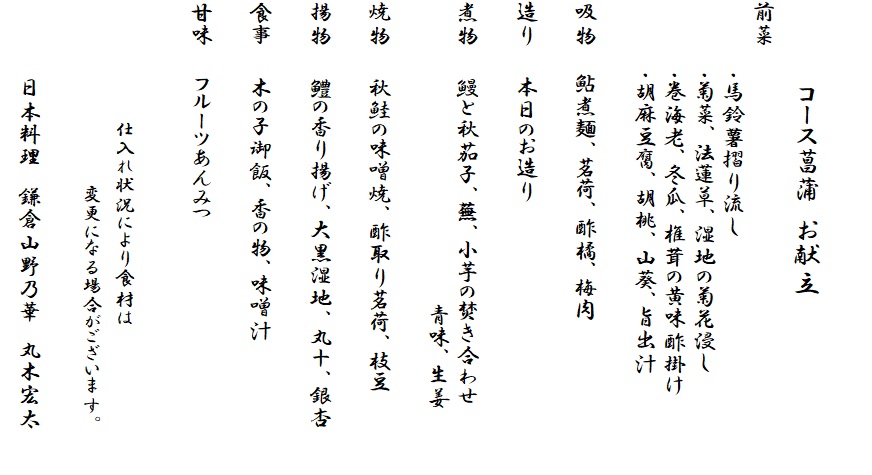 コース菖蒲　お献立
前菜
・馬鈴薯摺り流し
・菊菜、法蓮草、湿地の菊花浸し
・巻海老、冬瓜、椎茸の黄味酢掛け
・胡麻豆腐、胡桃、山葵、旨出汁
吸物　鮎煮麺、茗荷、酢橘、梅肉
造り　本日のお造り
煮物　鰻と秋茄子、蕪、小芋の焚き合わせ
青味、生姜
焼物　秋鮭の味噌焼、酢取り茗荷、枝豆
揚物　鱧の香り揚げ、大黒湿地、丸十、銀杏
食事　木の子御飯、香の物、味噌汁
甘味　フルーツあんみつ
仕入れ状況により食材は
変更になる場合がございます。
日本料理　鎌倉山野乃華　丸木宏太